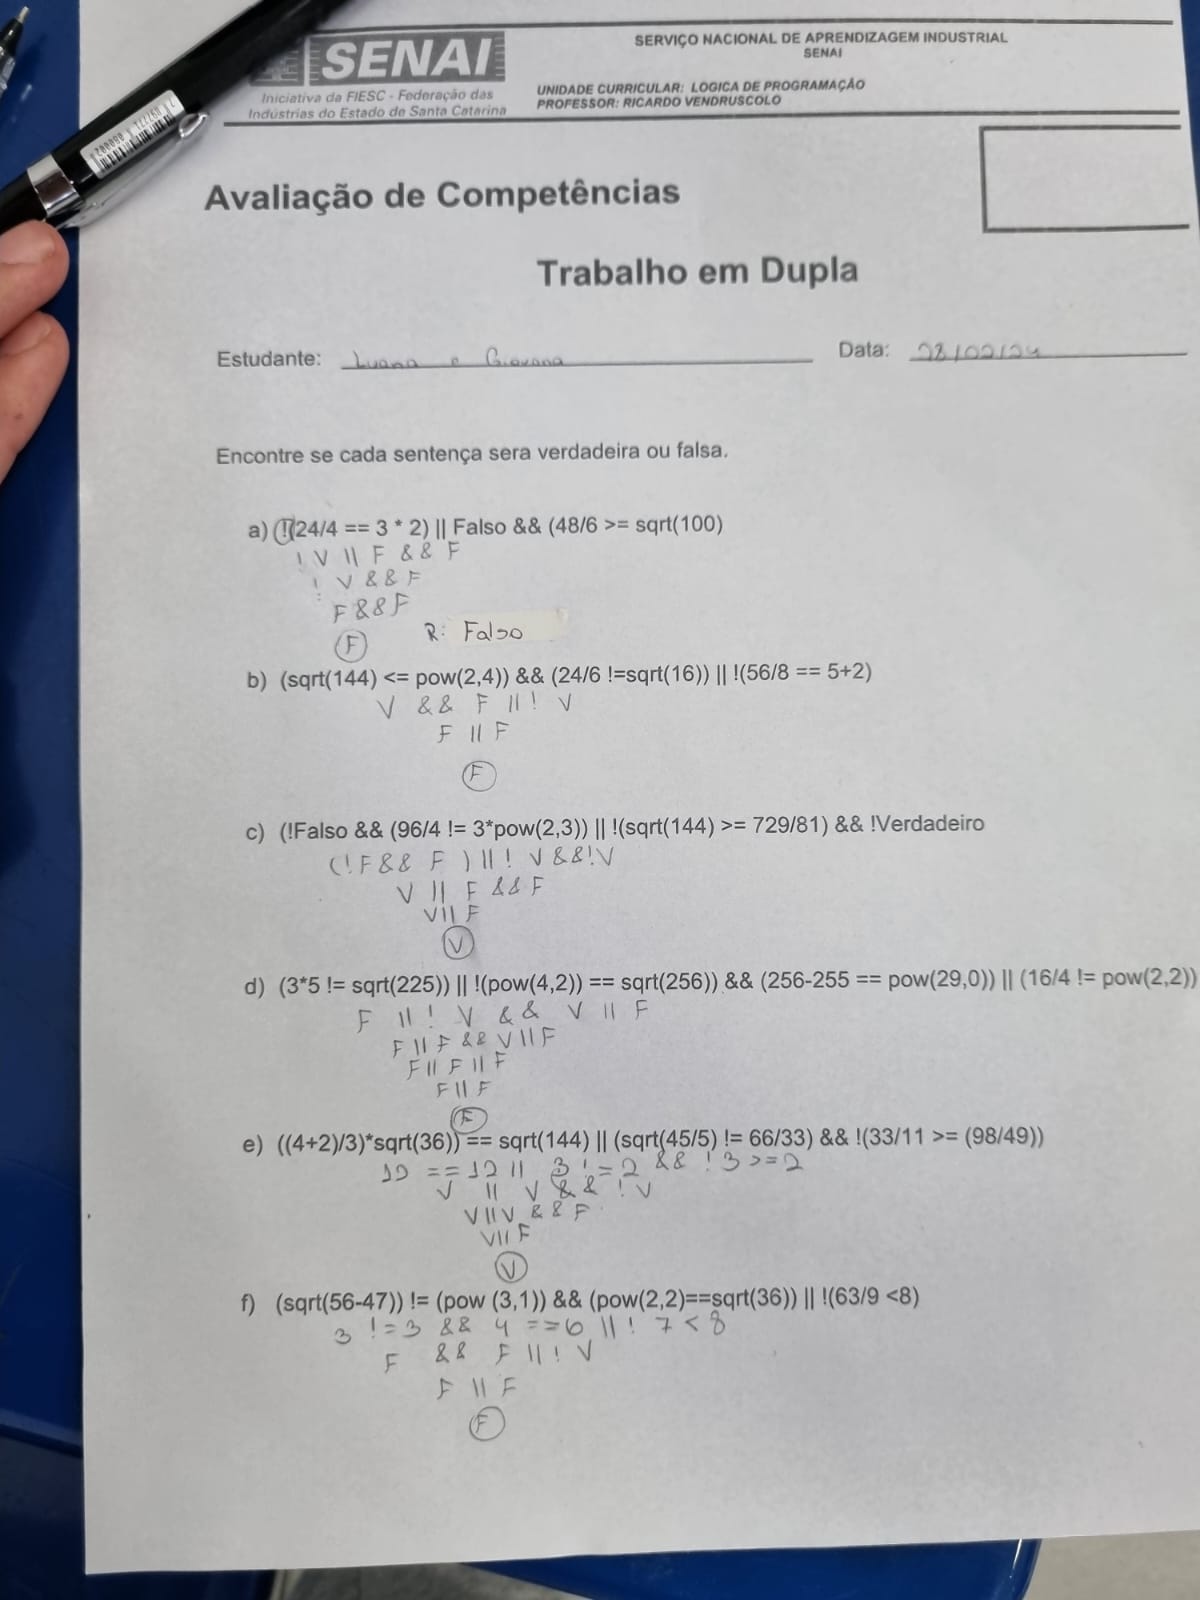 SENAI
Iniciativa da FIESC - Federação das
Indústrias do Estado de Santa Catarina
SERVIÇO NACIONAL DE APRENDIZAGEM INDUSTRIAL
SENAI
UNIDADE CURRICULAR: LOGICA DE PROGRAMAÇÃO
PROFESSOR: RICARDO VENDRUSCOLO
Avaliação de Competências
Trabalho em Dupla
Estudante: Luana e Giovana Data: 28/02/24
Encontre se cada sentença sera verdadeira ou falsa.
a) !(24/4 == 3 * 2) || Falso && (48/6 >= sqrt(100)
! V || F && F
! V && F
F && F
F R: Falso
b) (sqrt(144) <= pow(2,4)) && (24/6 !=sqrt(16)) || !(56/8 == 5+2)
V && F || ! V
F || F
F
c) (!Falso && (96/4 != 3*pow(2,3)) || !(sqrt(144) >= 729/81) && !Verdadeiro
(!F && F ) || ! V && !V
V || F && F
V || F
V
d) (3*5 != sqrt(225)) || !(pow(4,2)) == sqrt(256)) && (256-255 == pow(29,0)) || (16/4 != pow(2,2))
F || ! V && V || F
F || F && V || F
F || F || F
F || F
F
e) ((4+2)/3)*sqrt(36)) == sqrt(144) || (sqrt(45/5) != 66/33) && !(33/11 >= (98/49))
12 == 12 || 3 != 2 && ! 3 >= 2
V || V && ! V
V || V && F
V || F
V
f) (sqrt(56-47)) != (pow (3,1)) && (pow(2,2)==sqrt(36)) || !(63/9 <8)
3 != 3 && 4 == 6 || ! 7 < 8
F && F || ! V
F || F
F